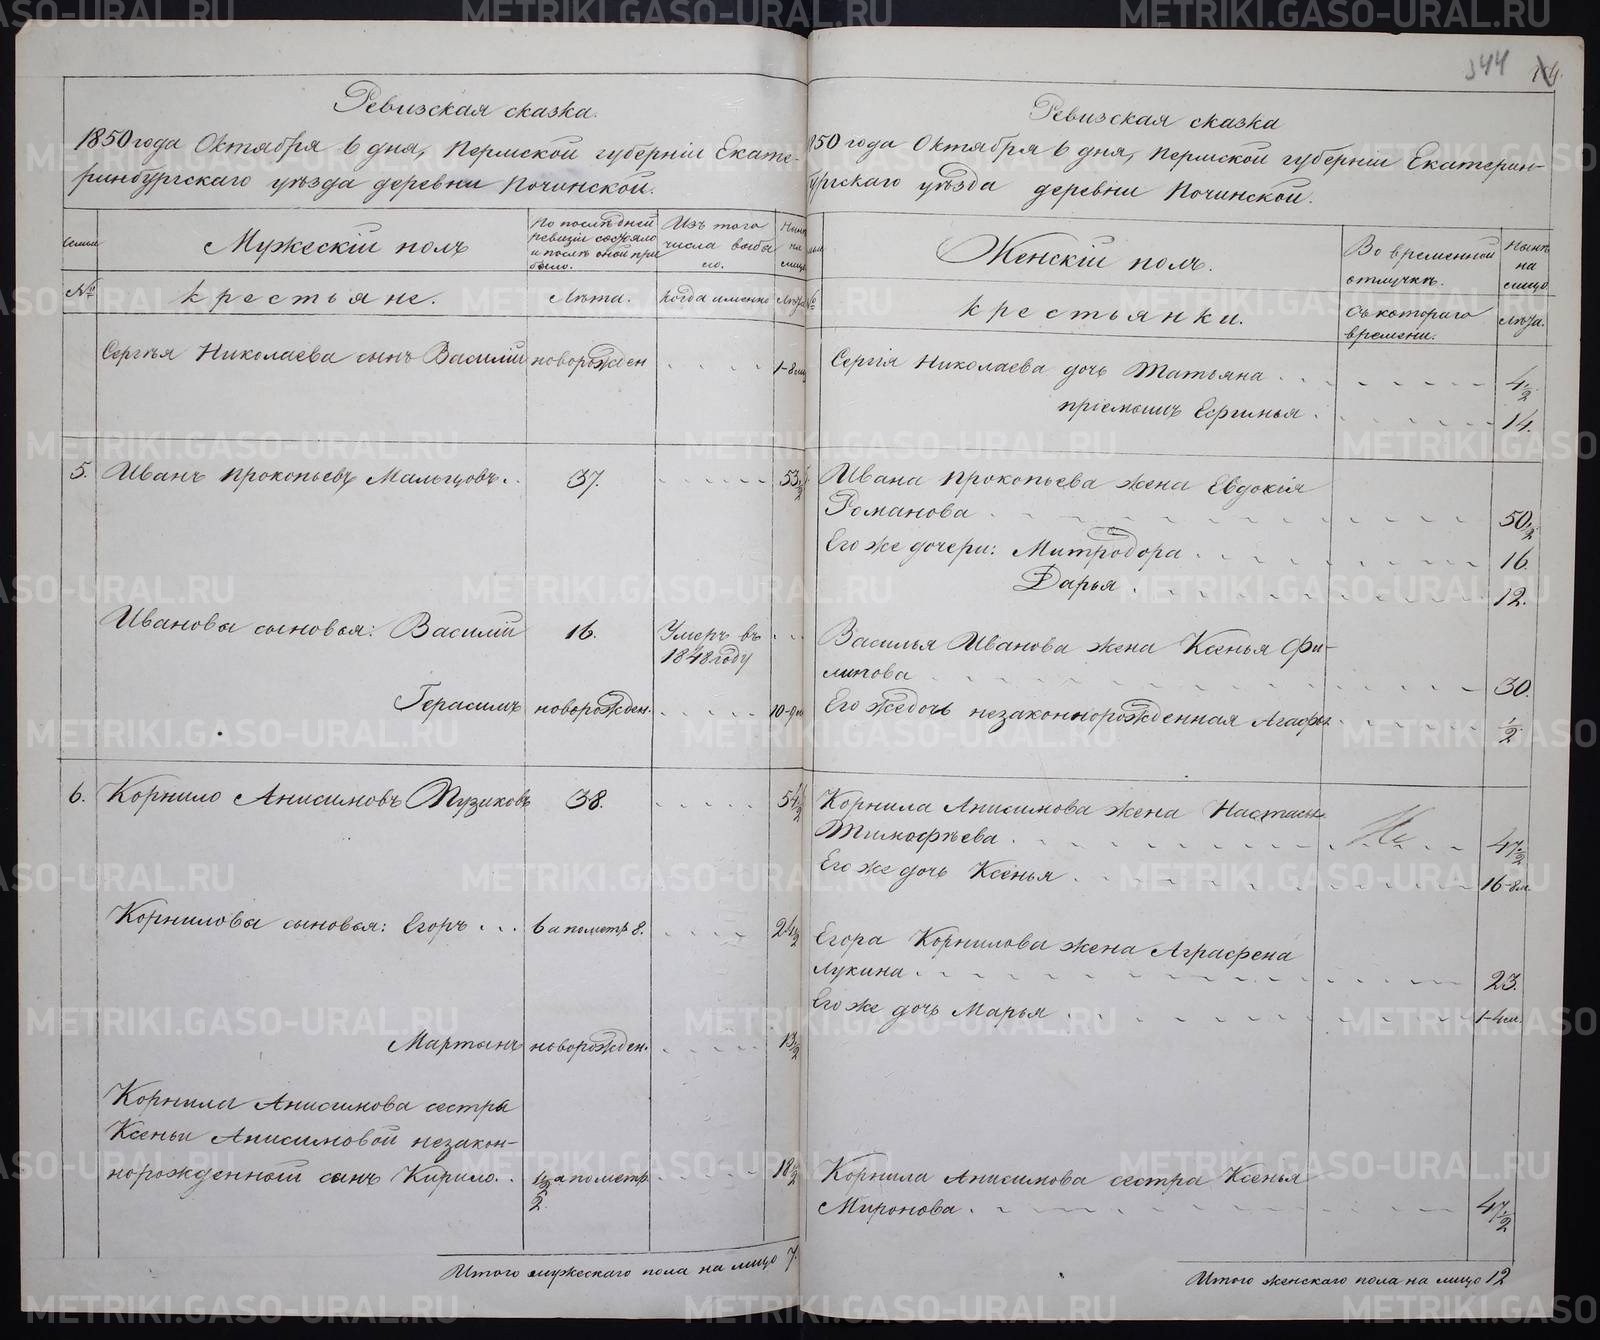 Ревизская сказка.
1850 года Октября 6 дня, Пермской губерніи Екате-
ринбургскаго уѣзда деревни Починской.
Семьи
Мужескій полъ
По послѣдней
ревизіи состояло
и послѣ оной при
было.
Изъ того
числа выбы
ло.
Нынѣ
на
лицо
№
крестьяне.
Лѣта.
Когда именно
Лѣта
Сергѣя Николаева сынъ Василій новорожден . . . . 1-8 мц
5. Иванъ Прокопьевъ Мальцовъ. . 37. . . . . . . 53 1/2
Ивановы сыновья: Василій 16. Умеръ въ . .
1848 году
Герасимъ новорожден. . . . . . 10-9 м
6. Корнило Анисимовъ Пузиковъ 38. . . . . . 54 1/2
Корниловы сыновья: Егоръ . . . 6 а пометр 8. . . . . 24 1/2
Мартынъ новорожден. . . . . . 13 1/2
Корнила Анисимова сестры
Ксеньи Анисимовой незакон-
норожденной сынъ Кирило. . 1/2 а пометр. . . . . . 18 1/2
2.
Итого мужескаго пола на лицо 7.
344
Ревизская сказка
850 года Октября 6 дня, Пермской губерніи Екатерин-
бургскаго уѣзда деревни Починской.
Женскій полъ.
Во временной
отлучкѣ.
Нынѣ
на
лицо
№
крестьянки.
Съ котораго
времени.
Лѣта.
Сергія Николаева дочь Татьяна . . . 4 1/2
пріемышъ Ефимья . 14.
Ивана Прокопьева жена Евдокія
Романова 50 1/2
Его же дочери: Митродора . . . 16
Дарья . 12.
Василья Иванова жена Ксенья Фи-
липова 30.
Его же дочь незаконнорожденная Агафья 1/2
Корнила Анисимова жена Настасья
Тимофѣева . 47 1/2
Его же дочь Ксенья . 16-8 м
Егора Корнилова жена Аграфена
Лукина . 23.
Его же дочь Марья . 1-4 м.
Корнила Анисимова сестра Ксенья
Миронова . 47 1/2
Итого женскаго пола на лицо 12
METRIKI.GASO-URAL.RU